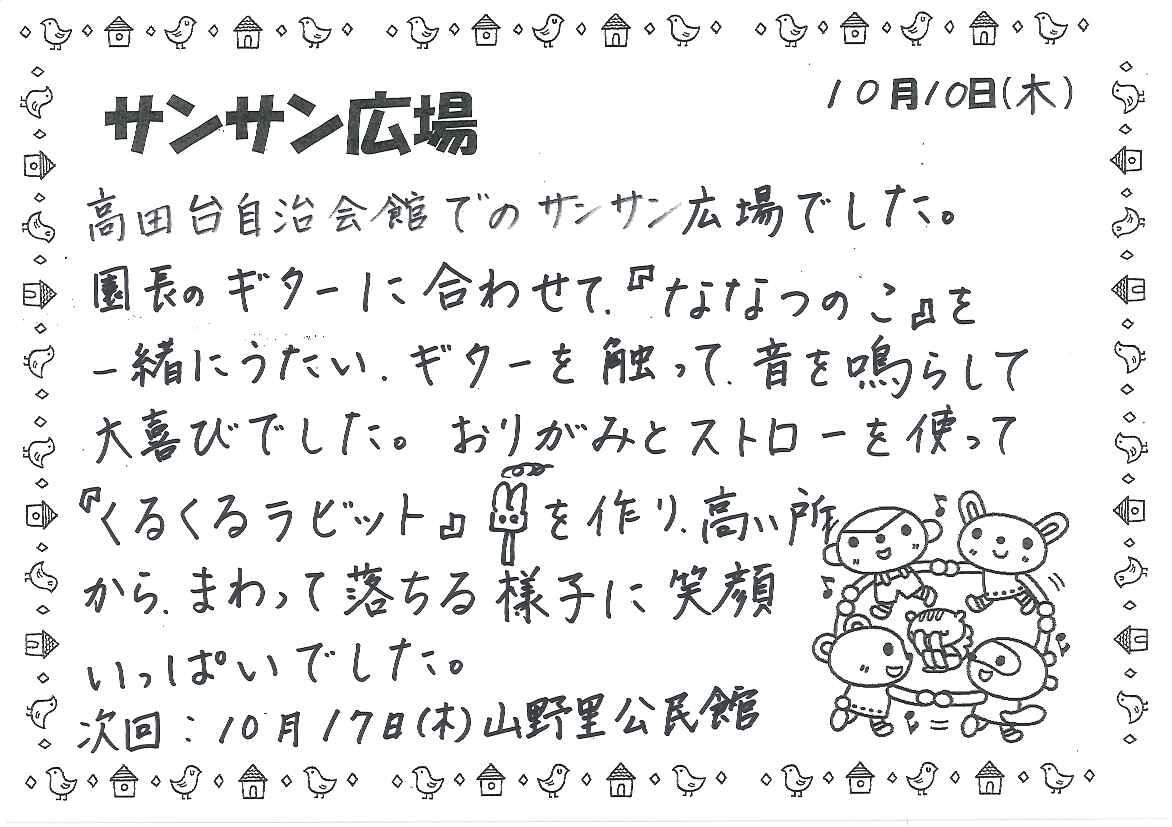 10月10日(木)
サンサン広場
高田台自治会館でのサンサン広場でした。
園長のギターに合わせて、『ななつのこ』を
一緒にうたい、ギターを触って、音を鳴らして
大喜びでした。おりがみとストローを使って
『くるくるラビット』を作り、高い所
から、まわって落ちる様子に笑顔
いっぱいでした。
次回：10月17日(木)山野里公民館